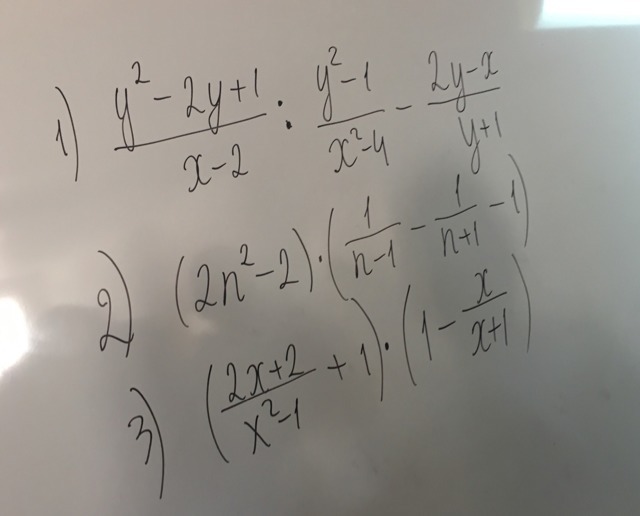 1) \frac{y^2-2y+1}{x-2} : \frac{y^2-1}{x^2-4} - \frac{2y-x}{y+1}
2) (2n^2-2)·(\frac{1}{n-1} - \frac{1}{n+1} - 1)
3) (\frac{2x+2}{x^2-1} + 1)·(1 - \frac{x}{x+1})